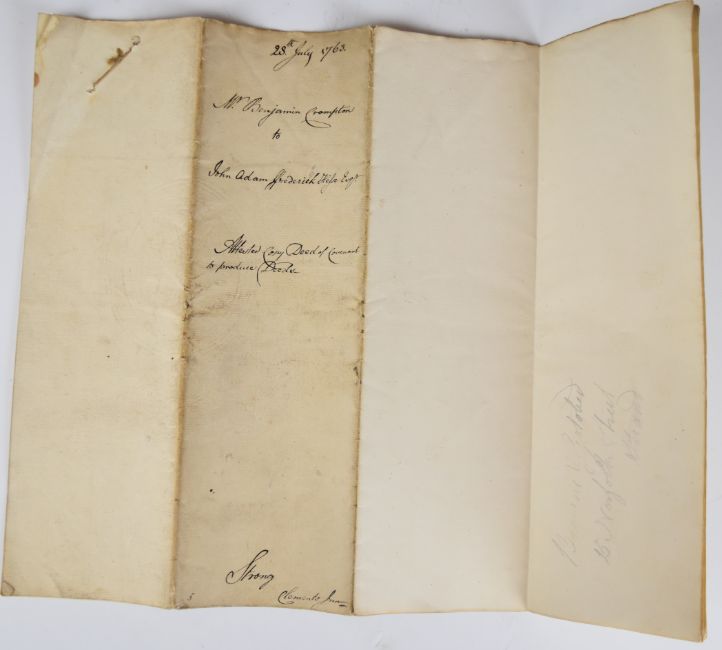 28th July 1763.
Mr Benjamin Crompton
to
John Adam Frederick Hesse Esqr
Attested Copy Deed of Covenant
to produce Deeds
Strong
Clements Inn
Norfolk Street
Strand